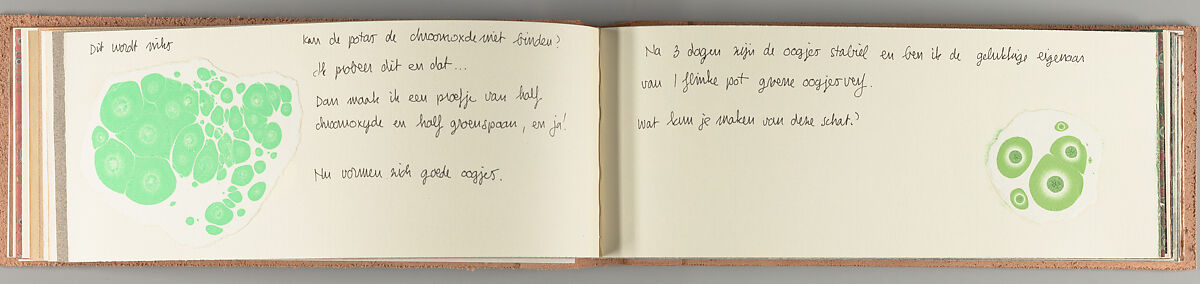 Dit wordt niks
kan de potas de chroomoxde niet binden?
Ik probeer dit en dat...
Dan maak ik een proefje van half
chroomoxyde en half groenspaan, en ja!
Nu vormen zich goede oogjes.
Na 3 dagen zijn de oogjes stabiel en ben ik de gelukkige eigenaar
van 1 flinke pot groene oogjesverf.
Wat kun je maken van deze schat?